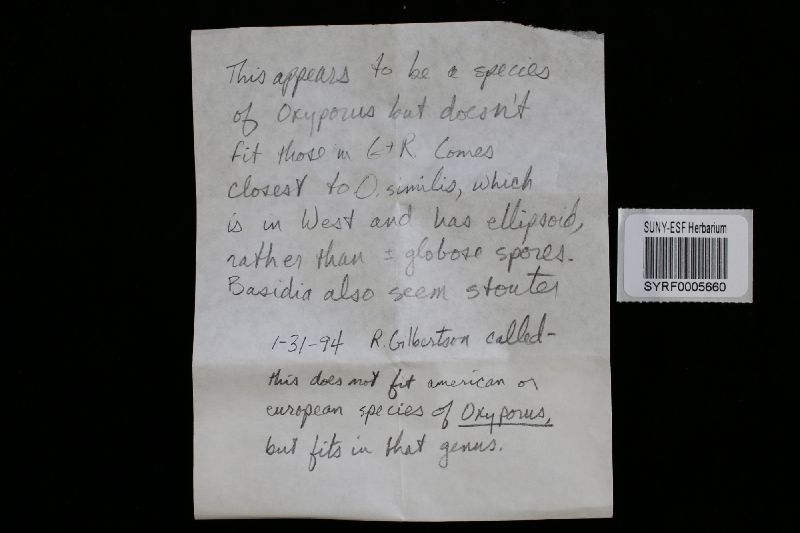 This appears to be a species
of Oxyporus but doesn't
fit those in G+R. Comes
closest to O. similis, which
is in West and has ellipsoid,
rather than ± globose spores.
Basidia also seem stouter
1-31-94 R. Gilbertson called-
this does not fit american or
european species of Oxyporus,
but fits in that genus.
SUNY-ESF Herbarium
SYRF0005660